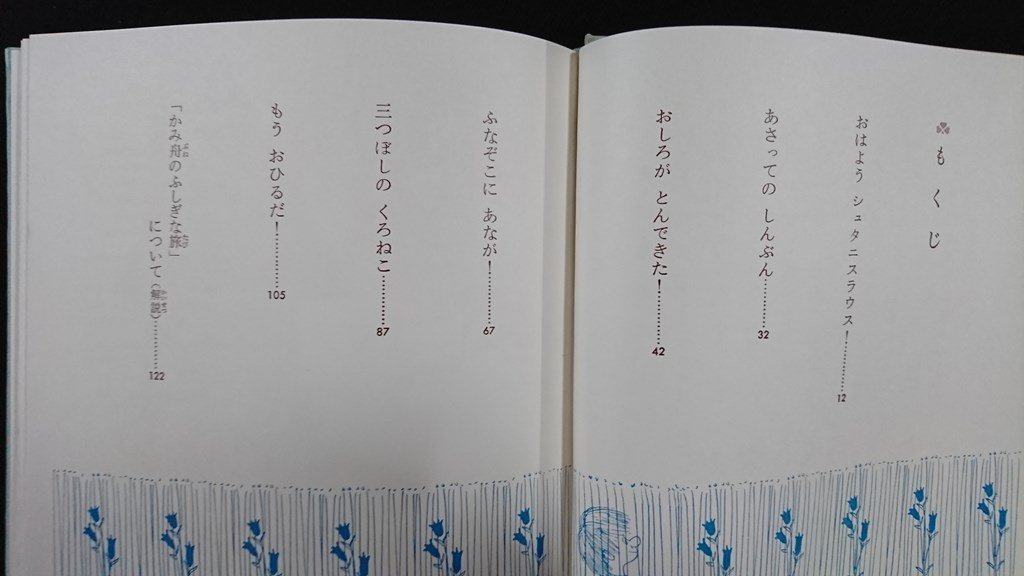 もくじ
おはよう シュタニスラウス！…………12
あさっての しんぶん…………32
おしろが とんできた！…………42
ふなぞこに あなが！…………67
三つぼしの くろねこ…………87
もう おひるだ！…………105
「かみ舟のふしぎな旅」
について（解説）…………122